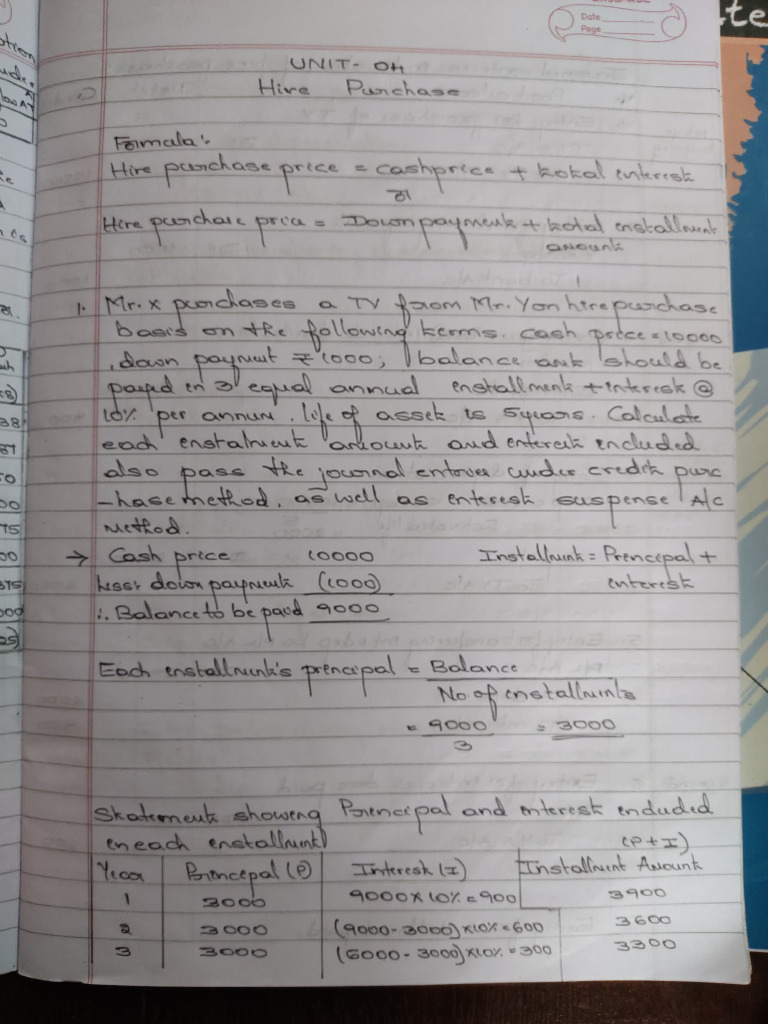 Date
Page
te
UNIT- 04
Hire Purchase
Formula:
Hire purchase price = cash price + total interest
or
Hire purchase price = Down payment + total installment
amount
1. Mr. X purchases a TV from Mr. Y on hire purchase
basis on the following terms. cash price = 10000
, down payment ₹ 1000; balance amt should be
payed in 3 equal annual installment + interest @
10% per annum. life of asset is 5 years. Calculate
each instalment amount and interest included
also pass the journal entries under credit purc
-hase method, as well as interest suspense A/c
method.
→ Cash price 10000 Installment = Principal +
Less: down payment (1000) interest
∴ Balance to be paid 9000
Each installment's principal = Balance
No. of installments
= 9000 = 3000
3
Statement showing Principal and interest included
in each installment (P+I)
Year Principal (P) Interest (I) Installment Amount
1 3000 9000 x 10% = 900 3900
2 3000 (9000 - 3000) x 10% = 600 3600
3 3000 (6000 - 3000) x 10% = 300 3300